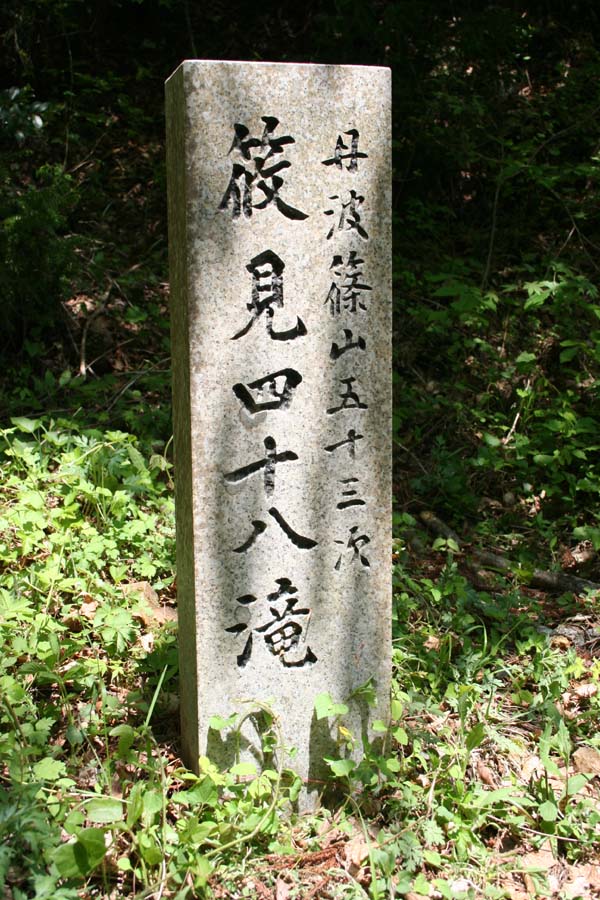 丹波篠山五十三次
筱見四十八滝